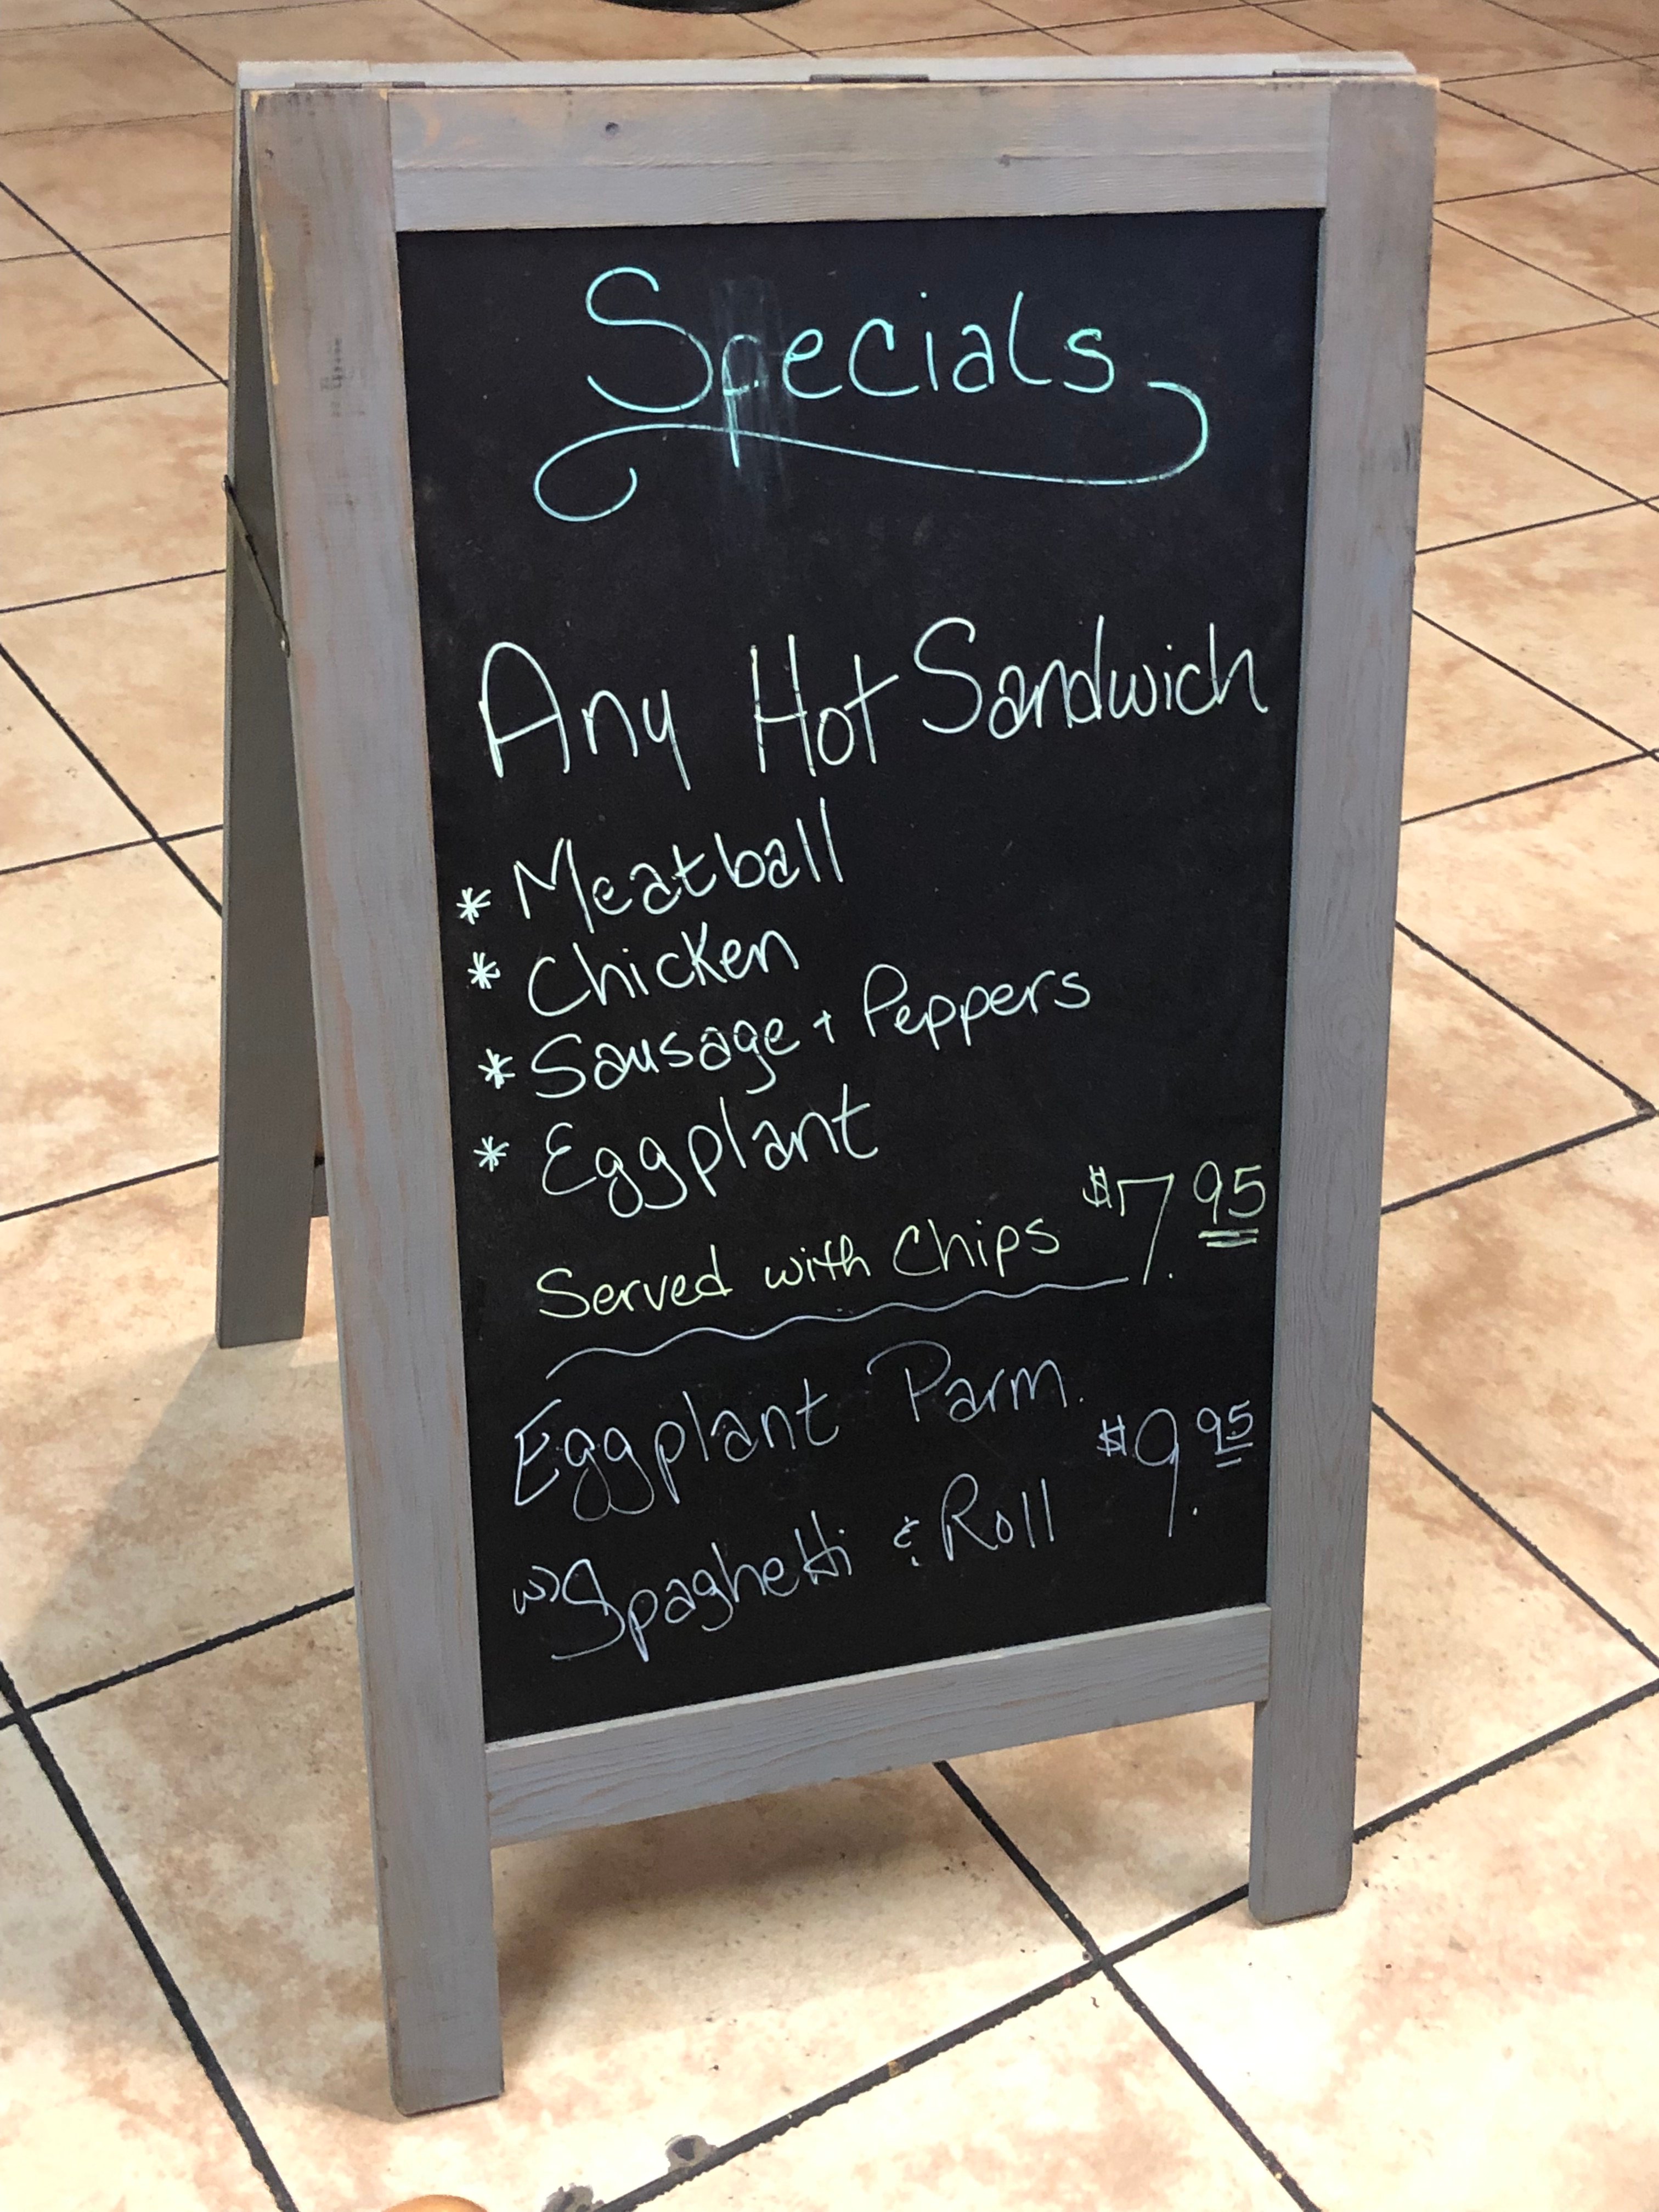 Specials
Any Hot Sandwich
* Meatball
* Chicken
* Sausage + Peppers
* Eggplant
Served with Chips $7.95
Eggplant Parm. $9.95
w/Spaghetti & Roll